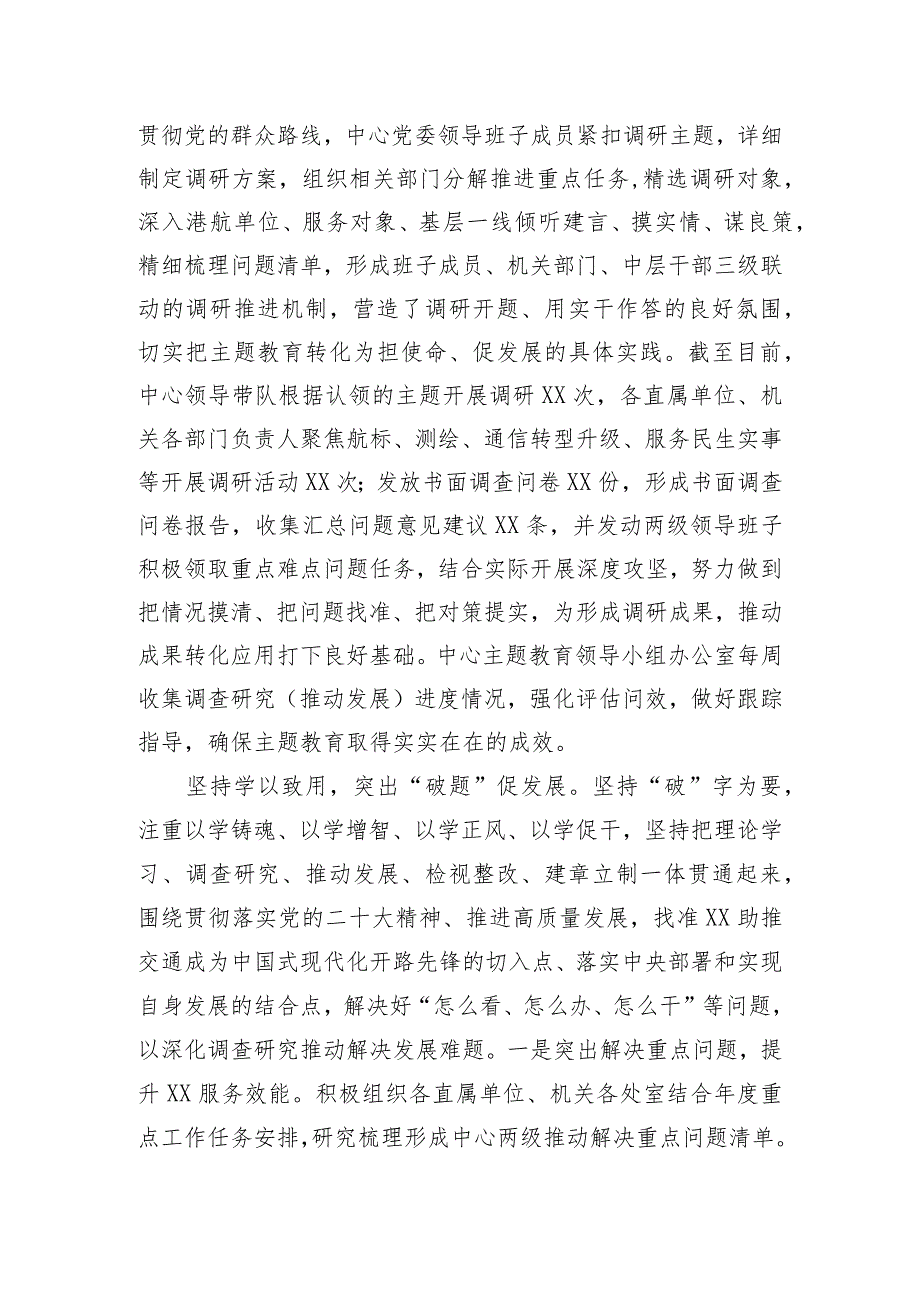 贯彻党的群众路线，中心党委领导班子成员紧扣调研主题，详细
制定调研方案，组织相关部门分解推进重点任务,精选调研对象，
深入港航单位、服务对象、基层一线倾听建言、摸实情、谋良策，
精细梳理问题清单，形成班子成员、机关部门、中层干部三级联
动的调研推进机制，营造了调研开题、用实干作答的良好氛围，
切实把主题教育转化为担使命、促发展的具体实践。截至目前，
中心领导带队根据认领的主题开展调研XX次，各直属单位、机
关各部门负责人聚焦航标、测绘、通信转型升级、服务民生实事
等开展调研活动XX次；发放书面调查问卷XX份，形成书面调查
问卷报告，收集汇总问题意见建议XX条，并发动两级领导班子
积极领取重点难点问题任务，结合实际开展深度攻坚，努力做到
把情况摸清、把问题找准、把对策提实，为形成调研成果，推动
成果转化应用打下良好基础。中心主题教育领导小组办公室每周
收集调查研究（推动发展）进度情况，强化评估问效，做好跟踪
指导，确保主题教育取得实实在在的成效。
坚持学以致用，突出“破题”促发展。坚持“破”字为要，
注重以学铸魂、以学增智、以学正风、以学促干，坚持把理论学
习、调查研究、推动发展、检视整改、建章立制一体贯通起来，
围绕贯彻落实党的二十大精神、推进高质量发展，找准XX助推
交通成为中国式现代化开路先锋的切入点、落实中央部署和实现
自身发展的结合点，解决好“怎么看、怎么办、怎么干”等问题，
以深化调查研究推动解决发展难题。一是突出解决重点问题，提
升XX服务效能。积极组织各直属单位、机关各处室结合年度重
点工作任务安排,研究梳理形成中心两级推动解决重点问题清单。